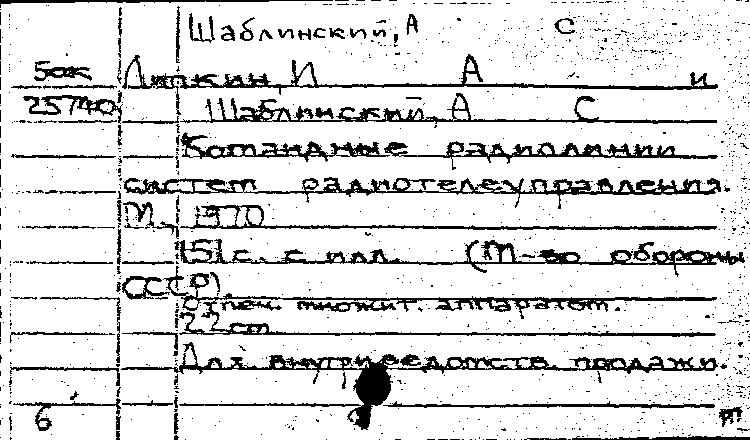 Шаблинский, А С
50ж Липкин, И А и
25740 Шаблинский, А С
Командные радиолинии
систем радиотелеуправления.
М., 1970
151 с. с илл. (М-во обороны
СССР).
Отпеч. множит. аппаратом.
22 см
Для внутриведомств. продажи.
6